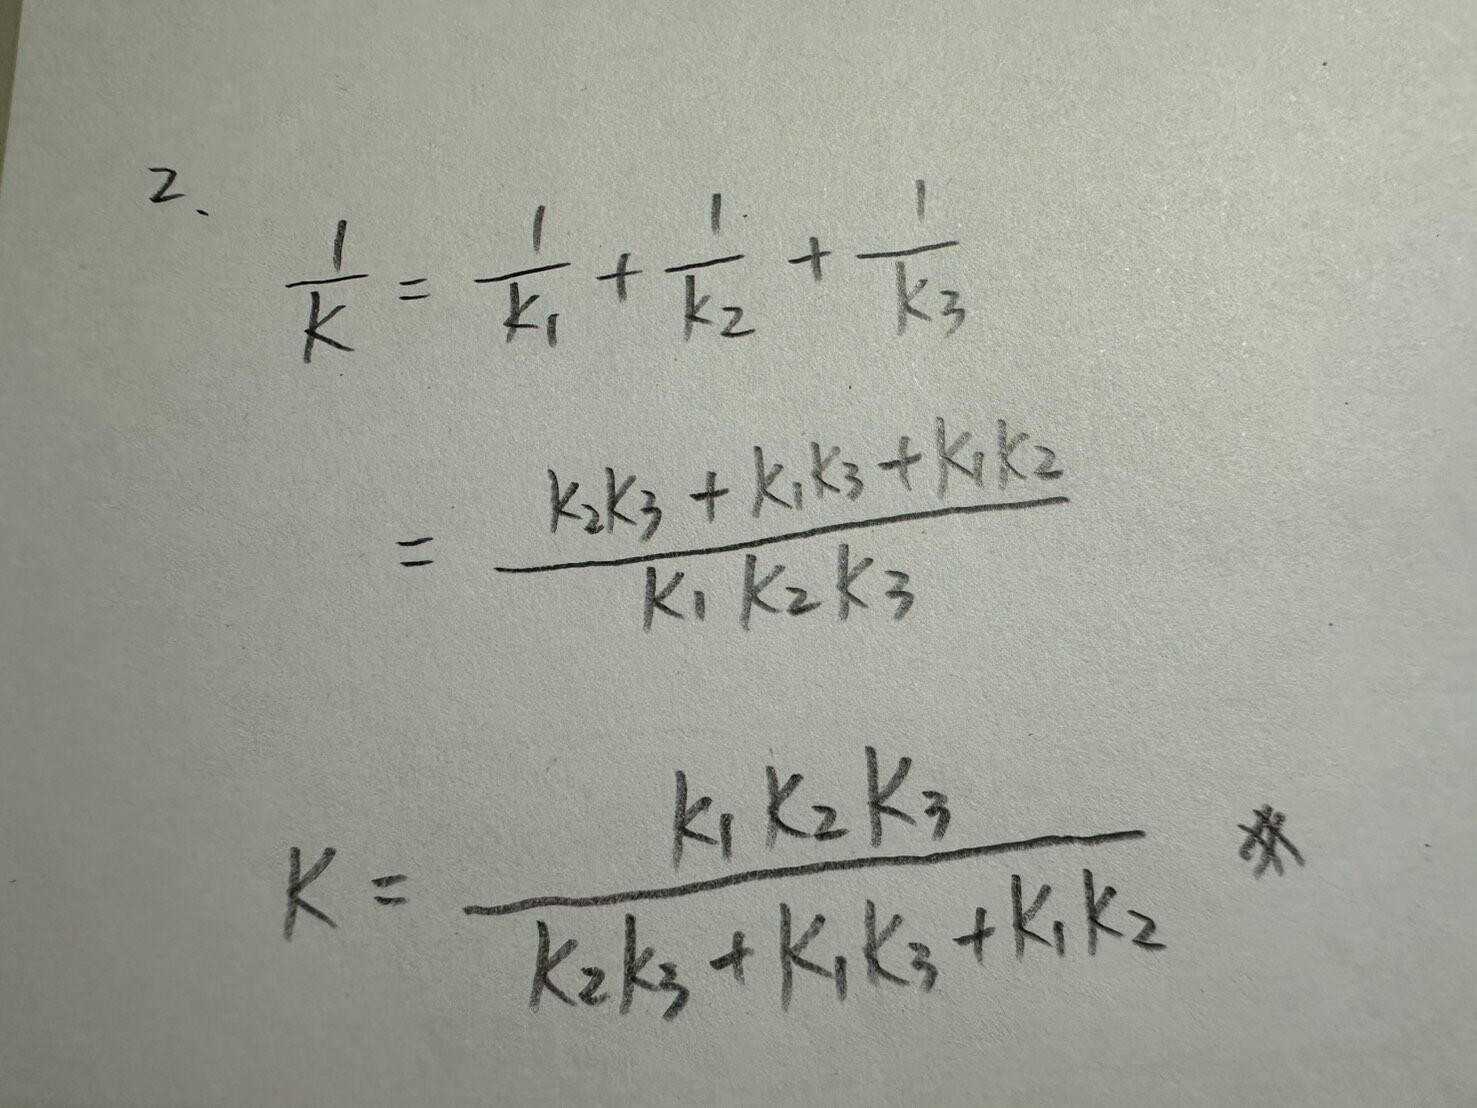 2.
1/K = 1/K₁ + 1/K₂ + 1/K₃
= (K₂K₃ + K₁K₃ + K₁K₂)/(K₁ K₂ K₃)
K = (K₁ K₂ K₃)/(K₂K₃ + K₁K₃ + K₁K₂) ※